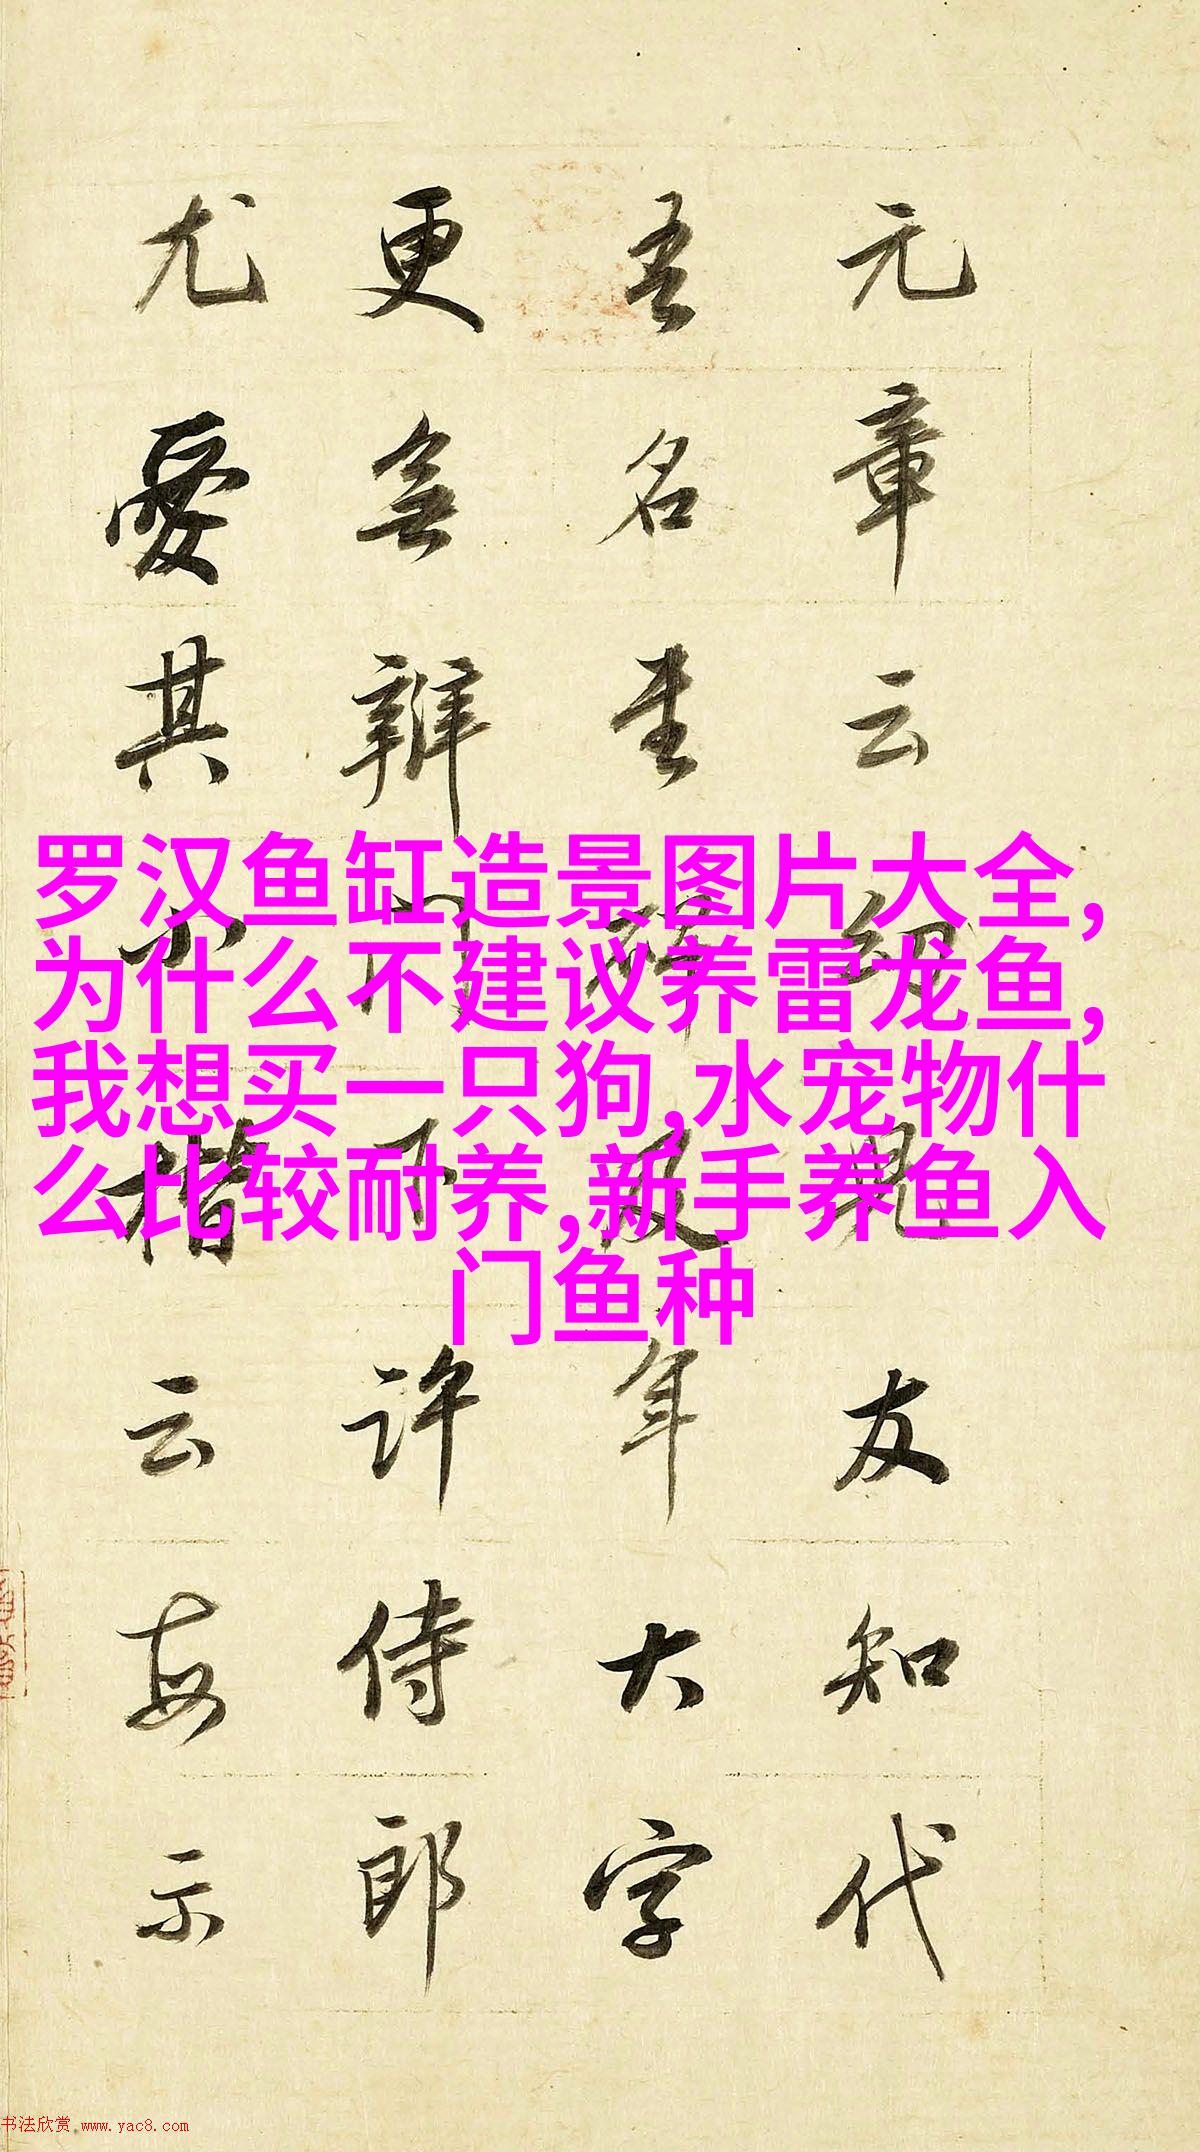 罗汉鱼缸造景图片大全,
为什么不建议养雷龙鱼,
我想买一只狗,水宠物什
么比较耐养,新手养鱼入
门鱼种
元章云幼兒友知代
吾名書碑及年大字
更無辨門下許侍郎
尤愛其小楷云每示
书法欣赏.www.yac8.com